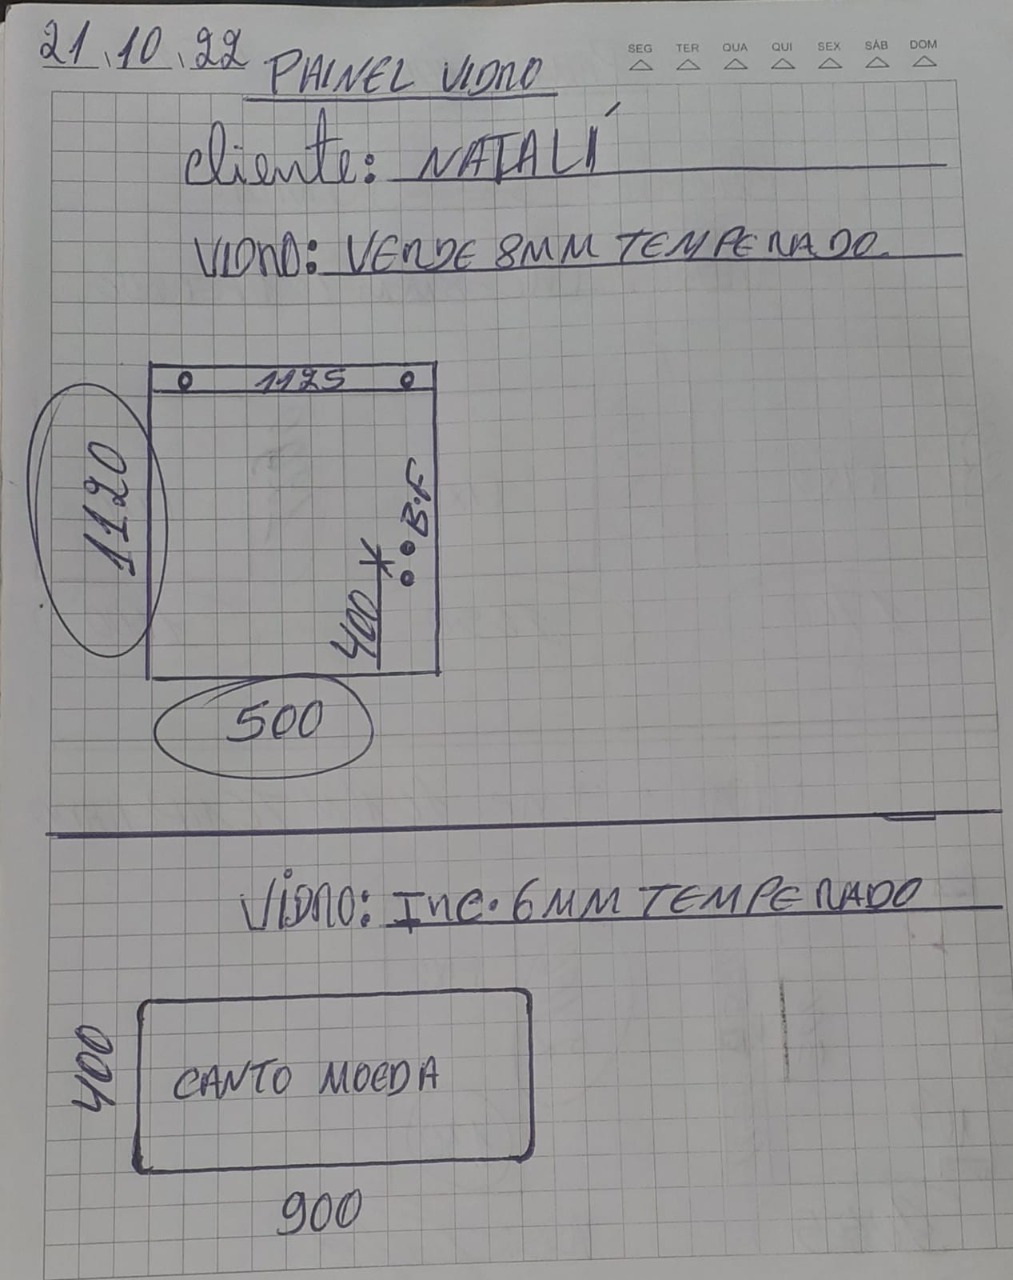 21.10.22
PAINEL VIDRO
SEG TER QUA QUI SEX SÁB DOM
cliente: NATALÍ
VIDRO: VERDE 8MM TEMPERADO.
1125
1120
B.F
400
500
VIDRO: INC. 6MM TEMPERADO
400
CANTO MOEDA
900